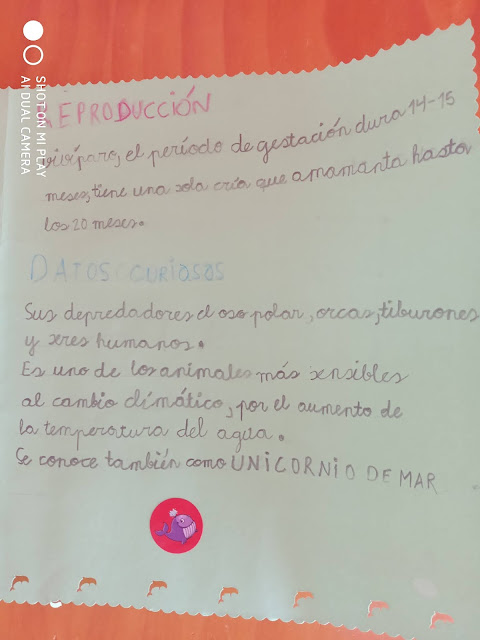 SHOT ON MI PLAY
AI DUAL CAMERA
REPRODUCCIÓN
Vivíparo, el período de gestación dura 14-15
meses, tiene una sola cría que amamanta hasta
los 20 meses.
DATOS CURIOSAS
Sus depredadores el oso polar, orcas, tiburones
y seres humanos.
Es uno de los animales más sensibles
al cambio climático, por el aumento de
la temperatura del agua.
Se conoce también como UNICORNIO DE MAR